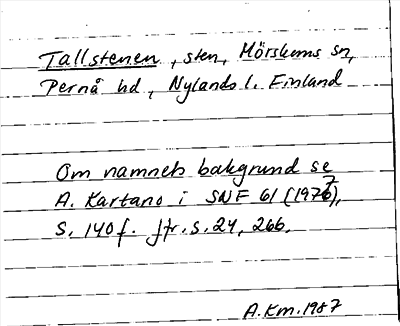 Tallstenen, sten, Mörskoms sn,
Pernå hd, Nylands l. Finland
Om namnets bakgrund se
A. Kartano i SNF 61 (1977),
S. 140f. Jfr. s. 24, 266.
A.Km. 1987